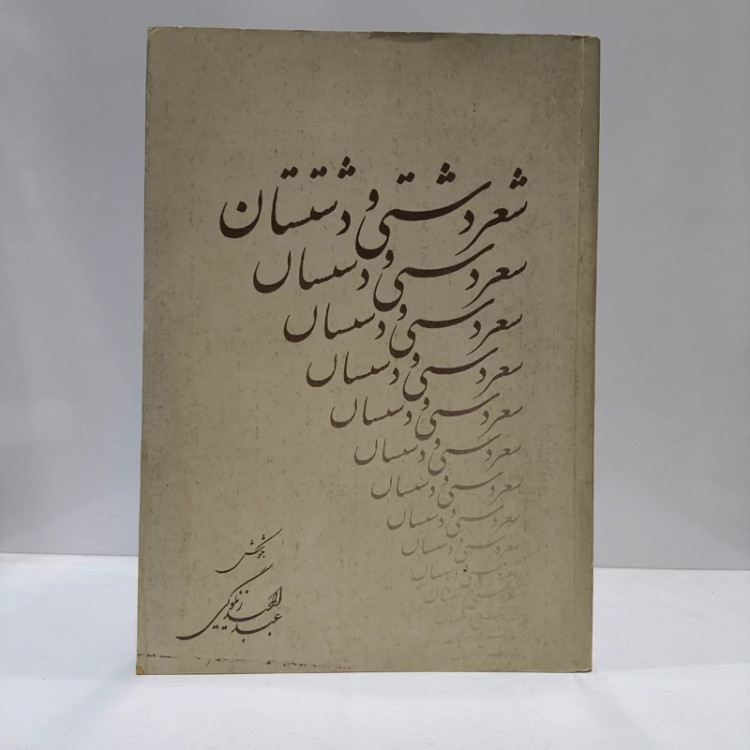 شعر دشتی و دشتستان
شعر دشتی و دشتستان
شعر دشتی و دشتستان
شعر دشتی و دشتستان
شعر دشتی و دشتستان
شعر دشتی و دشتستان
شعر دشتی و دشتستان
شعر دشتی و دشتستان
شعر دشتی و دشتستان
بکوشش
عبدالمجید زنگویی